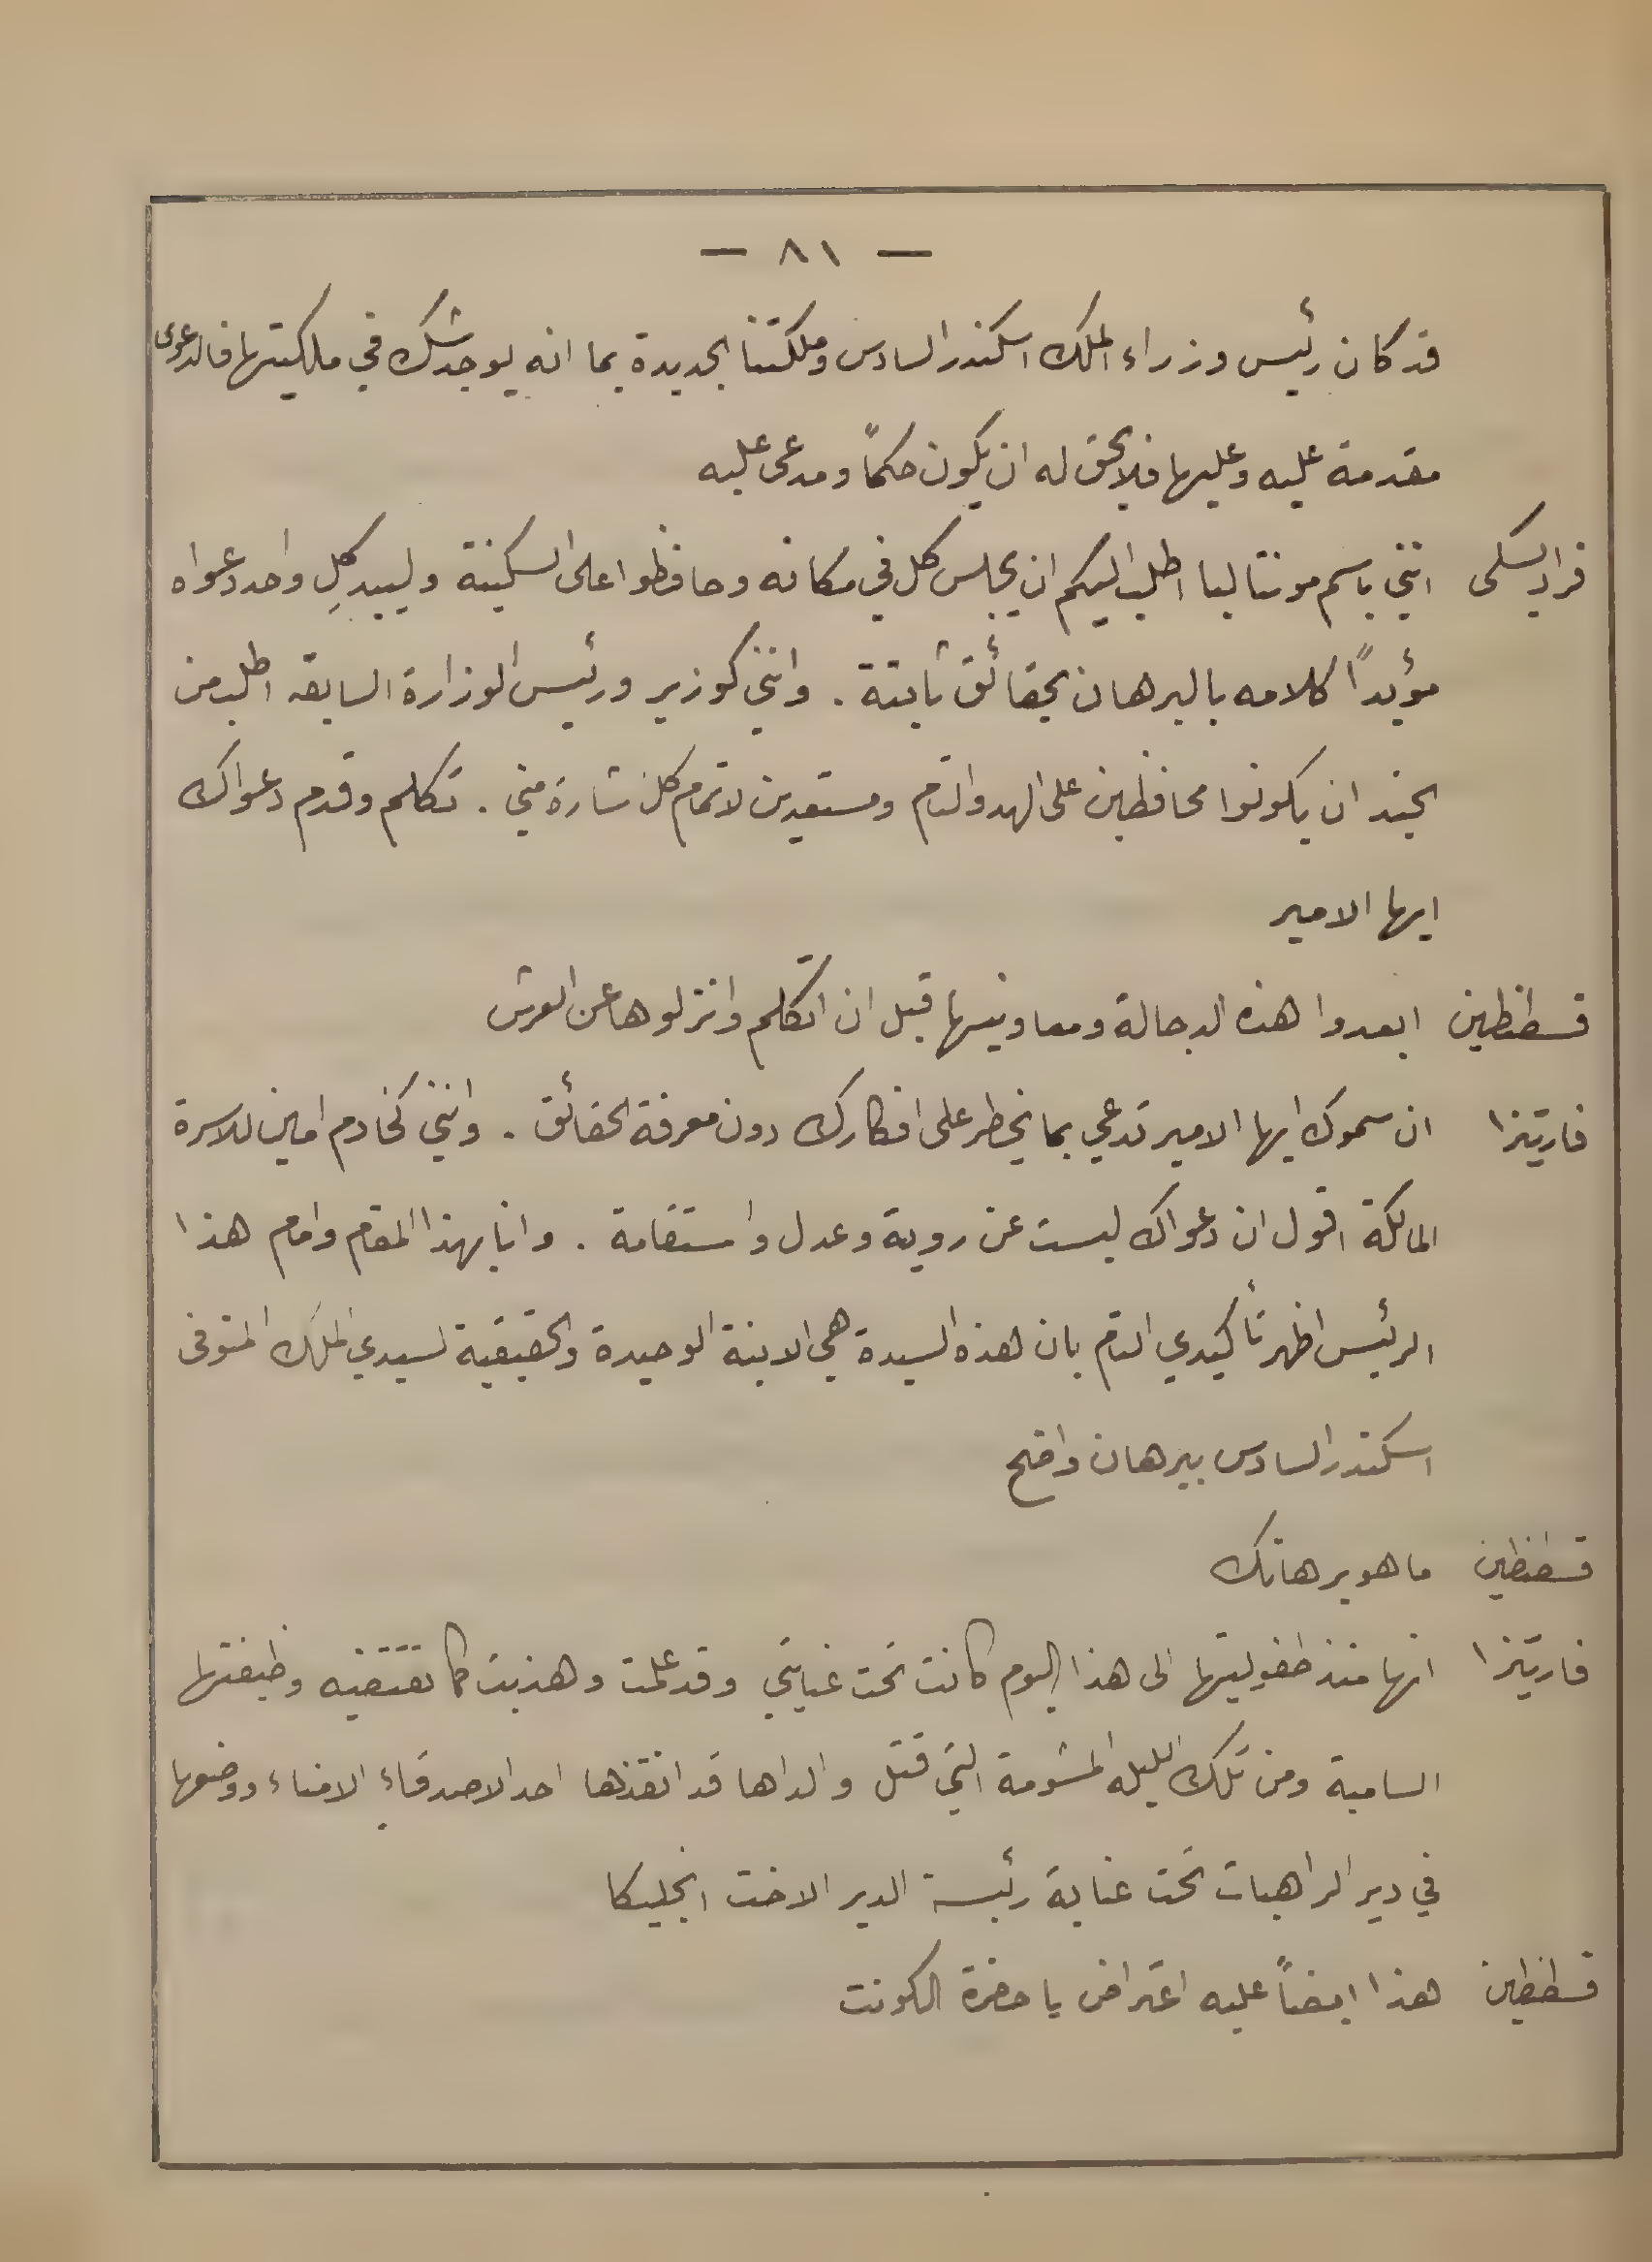 — ٨١ —
قد كان رئيس وزراء الملك اسكندر السادس وملكتنا الجديدة بما انه يوجد شك في ملكيتها فالدعوى
مقدمة عليه وعليها فلا يحق له ان يكون حكماً ومدعى عليه
انني باسم مونتاليا اطلب اليكم ان يجلس كل في مكانه وحافظوا على السكينة وليبد كلِ واحد دعواه
مؤيداً كلامه بالبرهان بحقائق ثابتة . وانني كوزير ورئيس الوزارة السابقه اطلب من
الجند ان يكونوا محافظين على الهدو التام ومستعدين لاتمام كل اشارة مني . تكلم وقدم دعواك
ايها الامير
قسطنطين ابعدوا هذه الدجالة ومعاونيها قبل ان اتكلم وانزلوها عن العرش
فاريتزا ان سموك ايها الامير تدعي بما يخطر على افكارك دون معرفة الحقائق . وانني كخادم امين للاسرة
المالكة اقول ان دعواك ليست عن روية وعدل واستقامة . وانا بهذا المقام وامام هذا
الرئيس اظهر تأكيدي التام بان هذه السيدة هي الابنة الوحيدة والحقيقية لسيدي الملك المتوفى
اسكندر السادس ببرهان واضح
قسطنطين ما هو برهانك
فاريتزا انها منذ طفوليتها الى هذا اليوم كانت تحت عنايتي وقد علمت وهذبت كما تقتضيه وظيفتها
السامية ومن تلك الليله المشومة التي قتل والداها قد انقذها احد الاصدقاء الامناء ووضعها
في دير الراهبات تحت عناية رئيسة الدير الاخت انجليكا
قسطنطين هذا ايضاً عليه اعتراض يا حضرة الكونت